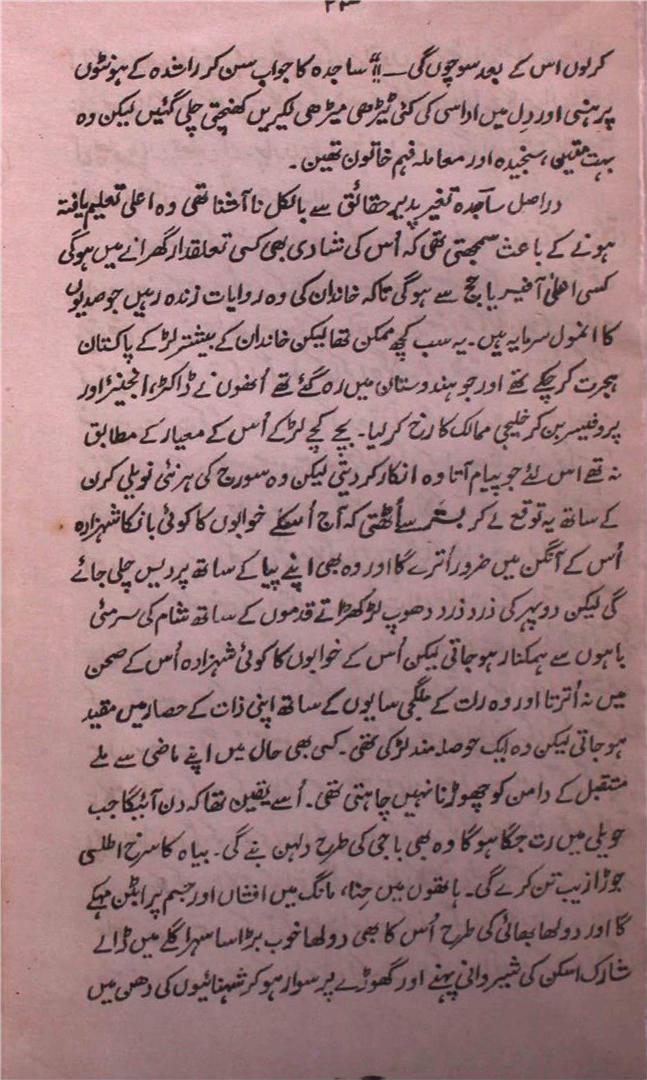 کرلوں اس کے بعد سوچوں گی ــ!!“ ساجدہ کا جواب سن کر راشدہ کے ہونٹوں
پر ہنسی اور دل میں اداسی کی کئی ٹیڑھی میڑھی لکیریں کھنچتی چلی گئیں لیکن وہ
بہت متین، سنجیدہ اور معاملہ فہم خاتون تھیں۔
دراصل ساجدہ تغیر پذیر حقائق سے بالکل نا آشنا تھی وہ اعلیٰ تعلیم یافتہ
ہونے کے باعث سمجھتی تھی کہ اُس کی شادی بھی کسی تعلقدار گھرانے میں ہوگی
کسی اعلیٰ آفیسر یا جج سے ہوگی تاکہ خاندان کی وہ روایات زندہ رہیں جو صدیوں
کا انمول سرمایہ ہیں۔ یہ سب کچھ ممکن تھا لیکن خاندان کے بیشتر لڑکے پاکستان
ہجرت کر چکے تھے اور جو ہندوستان میں رہ گئے تھے اُنھوں نے ڈاکٹر، انجنیئر اور
پروفیسر بن کر خلیجی ممالک کا رخ کر لیا۔ بچے کچے لڑکے اُس کے معیار کے مطابق
نہ تھے اس لئے جو پیام آتا وہ انکار کر دیتی لیکن وہ سورج کی ہر نئی نویلی کرن
کے ساتھ یہ توقع لے کر بستر سے اُٹھتی کہ آج اُسکے خوابوں کا کوئی بانکا شہزادہ
اُس کے آنگن میں ضرور اُترے گا اور وہ بھی اپنے پیا کے ساتھ پردیس چلی جائے
گی لیکن دوپہر کی زرد زرد دھوپ لڑکھڑاتے قدموں کے ساتھ شام کی سرمئی
باہوں سے ہمکنار ہو جاتی لیکن اُس کے خوابوں کا کوئی شہزادہ اُس کے صحن
میں نہ اُترتا اور وہ رات کے ملگجی سایوں کے ساتھ اپنی ذات کے حصار میں مقید
ہو جاتی لیکن وہ ایک حوصلہ مند لڑکی تھی۔ کسی بھی حال میں اپنے ماضی سے ملے
متقبل کے دامن کو چھوڑنا نہیں چاہتی تھی۔ اُسے یقین تھا کہ دن آئیگا جب
حویلی میں رت جگا ہوگا وہ بھی باجی کی طرح دلہن بنے گی۔ بیاہ کا سرخ اطلسی
جوڑا زیب تن کرے گی۔ ہاتھوں میں حِنا، مانگ میں افشاں اور جسم پر ابٹن مہکے
گا اور دولھا بھائی کی طرح اُس کا بھی دولھا خوب بڑا سا سہرا گلے میں ڈالے
شارک اسکن کی شیروانی پہنے اور گھوڑے پر سوار ہو کر شہنائیوں کی دھن میں